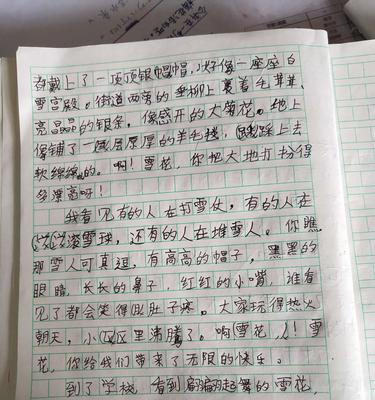 都戴上了一项顶银帽帽，好像一座座白
雪宫殿。街道两旁的垂柳上裹着毛茸茸、
亮晶晶的银条，像盛开的大菊花。地上
像铺了一层厚厚的羊毛毯，踩上去
软绵绵的。啊！雪花，你把大地打扮得
多漂亮呀！
我看见有的人在打雪仗，有的人在
滚雪球，还有的人在堆雪人。你瞧
那雪人可真逗，有高高的帽子，黑黑的
眼睛，长长的鼻子，红红的小嘴，谁看
见了都会笑得肚肚子疼。大家玩得热火
朝天，小区里沸腾了。啊雪花，！雪
花，你给我们带来了无限的快乐。
到了学校，看到翩翩起舞的雪花，